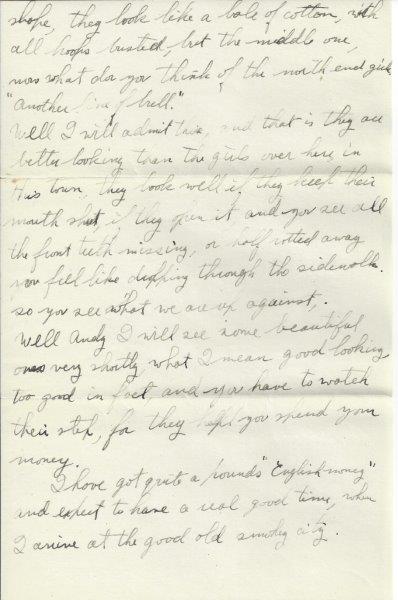 shape, they look like a bale of cotton, with
all hoops busted, but the middle one,
now what do you think of the north end girls
"Another line of bull."
Well I will admit this, and that is they are
better looking than the girls over here in
this town, they look well if they keep their
mouth shut, if they open it and you see all
the front teeth missing, or half rotted away
you feel like dropping through the sidewalk.
so you see what we are up against,.
Well Andy I will see some beautiful
ones very shortly, what I mean good looking,
too good in fact, and you have to watch
their step, for they help you spend your
money.
I have got quite a pounds "English money"
and expect to have a real good time, when
I arrive at the good old smokey city.